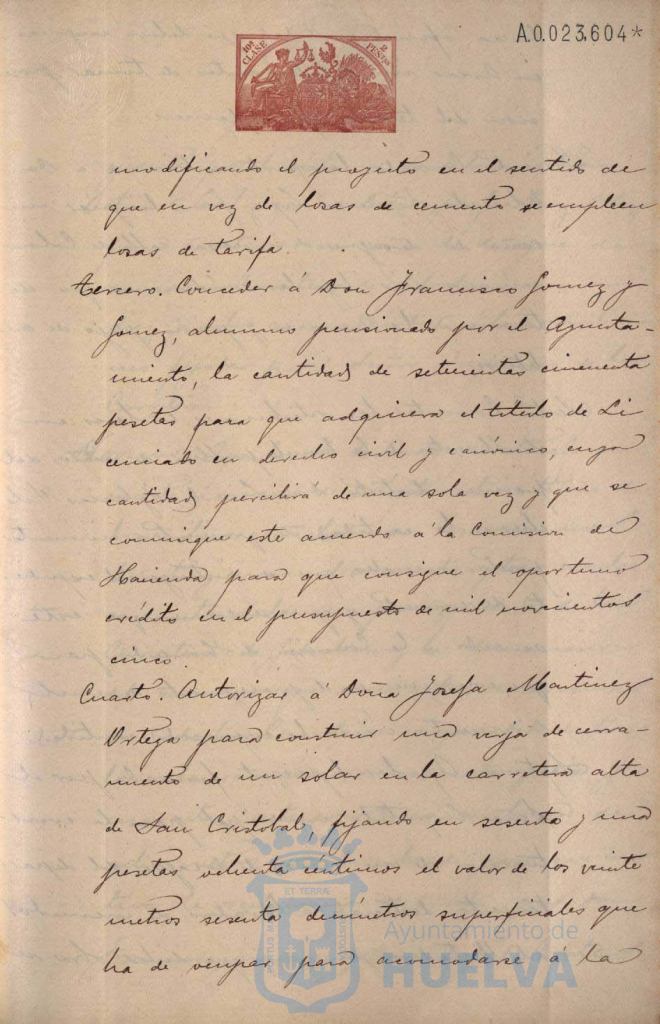 A.0.023,604*
10ª CLASE
2 PESETAS
modificando el proyecto en el sentido de
que en vez de losas de cemento se empleen
losas de tarifa.
Tercero. Conceder á Don Francisco Gomez y
Gomez, alumno pensionado por el Ayunta-
miento, la cantidad de setecientas cincuenta
pesetas para que adquiera el titulo de Li
cenciado en derecho civil y canónico, cuya
cantidad percibirá de una sola vez y que se
comunique este acuerdo á la Comision de
Hacienda para que consigne el oportuno
crédito en el presupuesto de mil novecientos
cinco.
Cuarto. Autorizar á Doña Josefa Martinez
Ortega para construir una verja de cerra-
miento de un solar en la carretera alta
de San Cristobal, fijando en sesenta y una
pesetas ochenta céntimos el valor de los veinte
metros sesenta decímetros superficiales que
ha de ocupar para acomodarse á la
ET TERRÆ
Ayuntamiento de
HUELVA